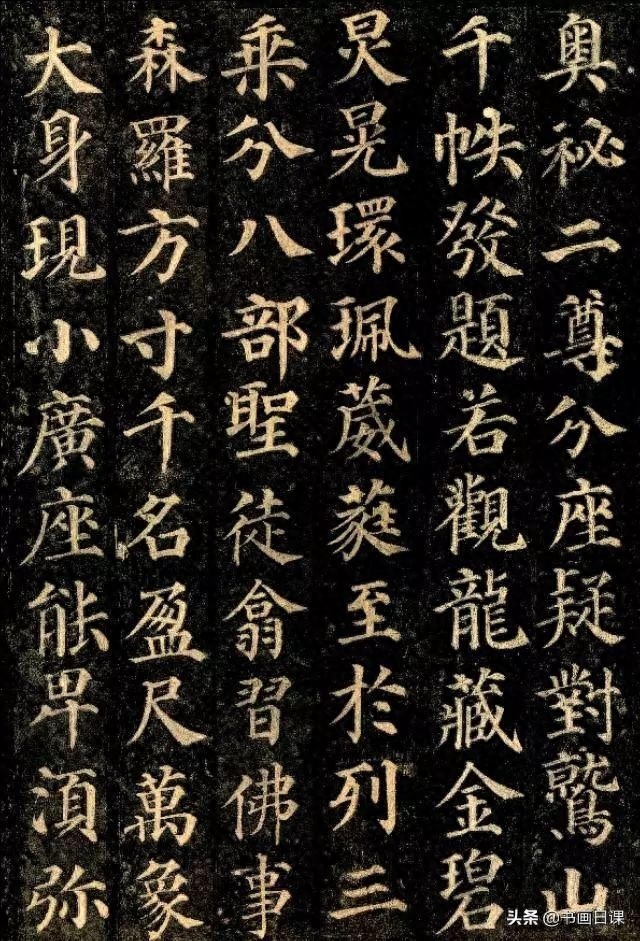 奥秘二尊分座疑對鷲山
千帙發題若觀龍藏金碧
炅晃環珮葳蕤至於列三
乘分八部聖徒翕習佛事
森羅方寸千名盈尺萬象
大身現小廣座能卑湏弥
头条 @书画日课